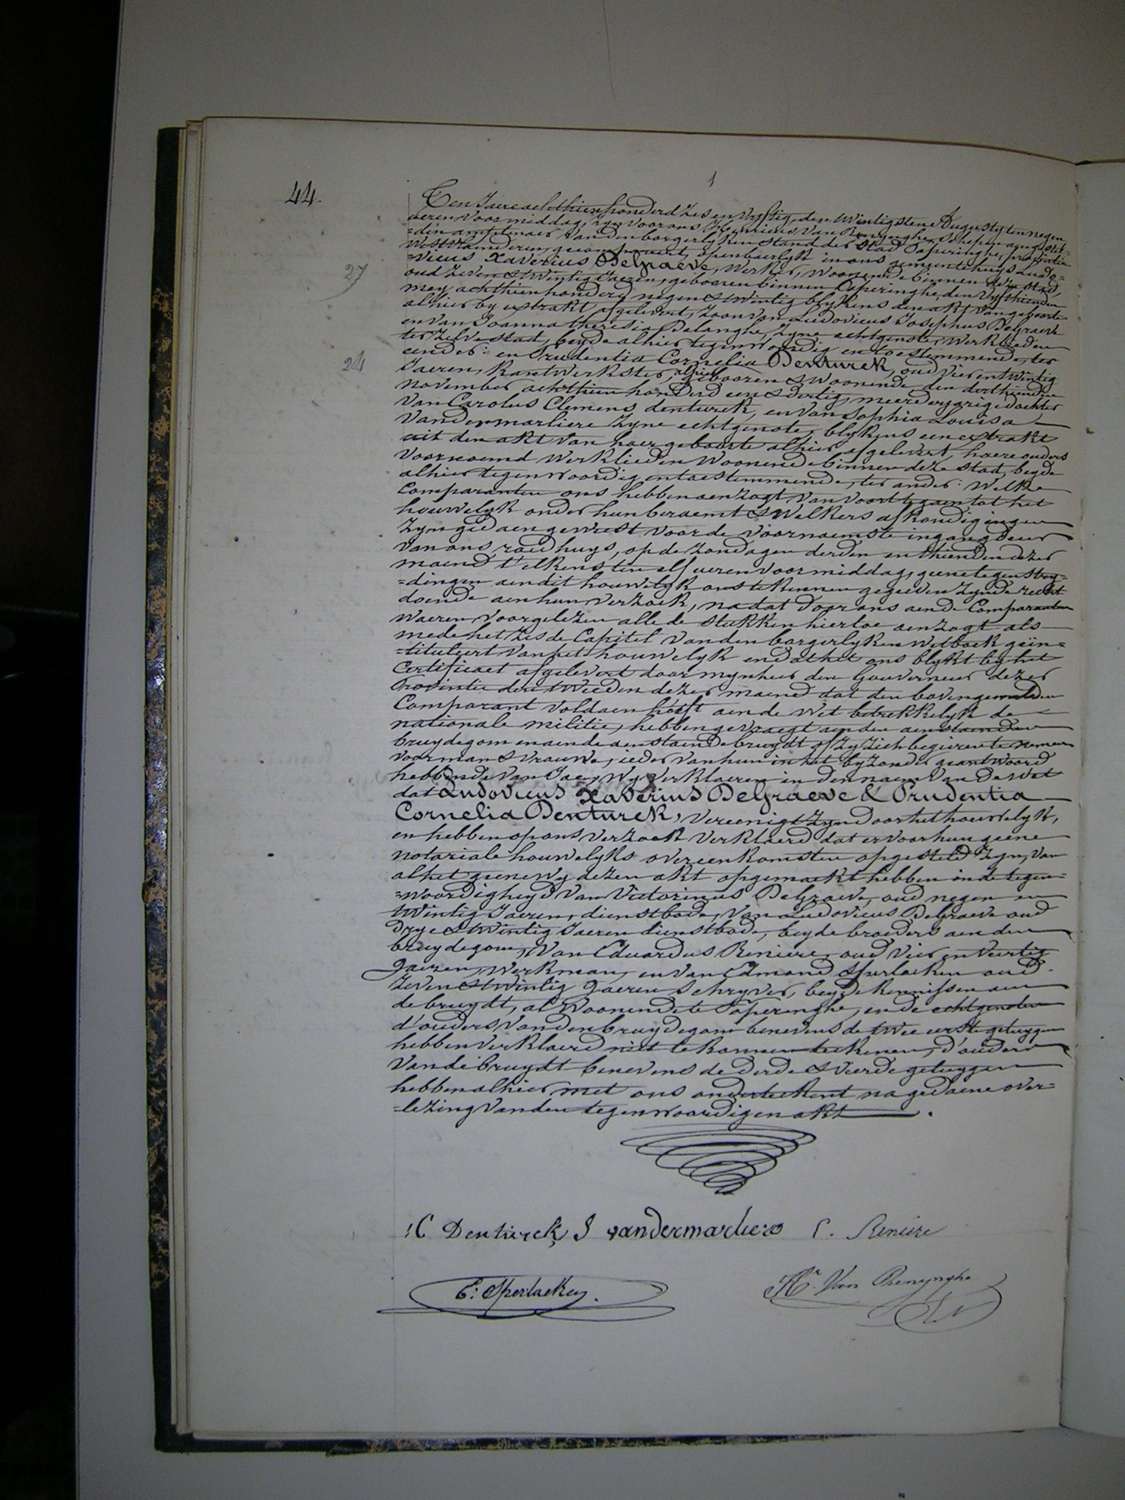 44.
1
Ten Jaere achthienhonderd zes en vyftig, den twintigsten Augusty ten negen
ueren voormiddag, zyn voor ons Henricus Van Renynghe, Schepen
den amptenaer van den borgerlyken stand der Stad Poperinghe, provintie
Westvlaenderen, gecompareert, openbaerlyk in ons gemeentehuys Ludo-
vicus Xaverius Delgraeve, werker, woonende binnen deze stad,
27
oud zeven & twintig Jaeren, gebooren binnen Poperinghe, den vyfthienden
mey achthien honderd negen & twintig blykens den akt van geboorte
alhier by extrakt afgelevert, zoon van Ludovicus Josephus Delgraeve
en van Joanna Theresia Delanghe, zyne echtgenote, werklieden
ter zelve stad, beyde alhier tegenwoordig en toestemmende, ter
24
eender: en Prudentia Cornelia Denturck, oud vier en twintig
Jaeren, kantwerkster, alhier gebooren & woonende den derthienden
november achthien honderd een & dertig, meerderjarige dochter
van Carolus Clemens denturck, en van Sophia Louisa
Vandermarliere zyne echtgenote, blykens een extrakt
uit den akt van haer geboorte alhier afgelevert, haere ouders
voornoemd werklieden woonende binnen deze stad, beyde
alhier tegenwoordig en toestemmende, ter ander: Welke
Comparanten ons hebben aenzogt van voorttegaen tot het
houwelyk onder hun beraemt & welkers afkondigingen
zyn gedaen geweest voor de voornaemste ingangdeur
van ons raedhuys, op de zondagen derden en thienden dezer
maend t'elkens ten elf ueren voormiddag, geene tegenstry-
dingen aen dit houwelyk ons te kennen gegeven zynde recht
doende aen hun verzoek, na dat door ons aen de Comparanten
waeren voorgelezen alle de stukken hiertoe aenzogt als
mede het zesde Capitel van den borgerlyken Wetboek geïn-
tituleert van het houwelyk en dat het ons blykt by het
Certificaet afgelevert door mynheer den Gouverneur dezer
Provintie den tweeden dezer maend dat den bovengemelden
Comparant voldaen heeft aen de Wet betrekkelyk de
nationale militie, hebben gevraegt aen den aenstaenden
bruydegom en aen de aenstaende bruydt of zy zich begeeren te nemen
voor man & vrouwe, ieder van hun in het byzonder geantwoord
hebbende van Jae, Wy verklaeren in den naem van de wet
dat Ludovicus Xaverius Delgraeve & Prudentia
Cornelia Denturck, vereenigt zyn door het houwelyk,
en hebben op ons verzoek verklaerd dat er voor hun geene
notariale houwelyks overeenkomsten opgesteld zyn, van
al het geene wy dezen akt opgemaekt hebben in de tegen-
woordigheyd van Victorinus Delgraeve, oud negen en
twintig Jaeren, dienstbode, van Ludovicus Delgraeve oud
drye & twintig Jaeren dienstbode, beyde broeders aen den
bruydegom, Van Eduardus Reniere, oud vier en veertig
Jaeren, werkman, en van Edmond Sperlaeken oud
zeven & twintig Jaeren schryver, beyde kennissen aen
de bruydt, al woonende te Poperinghe, en de echtgenoten
d'ouders van den bruydegom benevens de twee eerste getuygen
hebben verklaerd niet te konnen teekenen, d'ouders
van de bruydt benevens de derde & vierde getuygen
hebben alhier met ons onderteekent na gedaene over-
lezing van den tegenwoordigen akt.
C Denturck S vandermarliere E. Reniere
E: Sperlaeken. Hri Van Renynghe